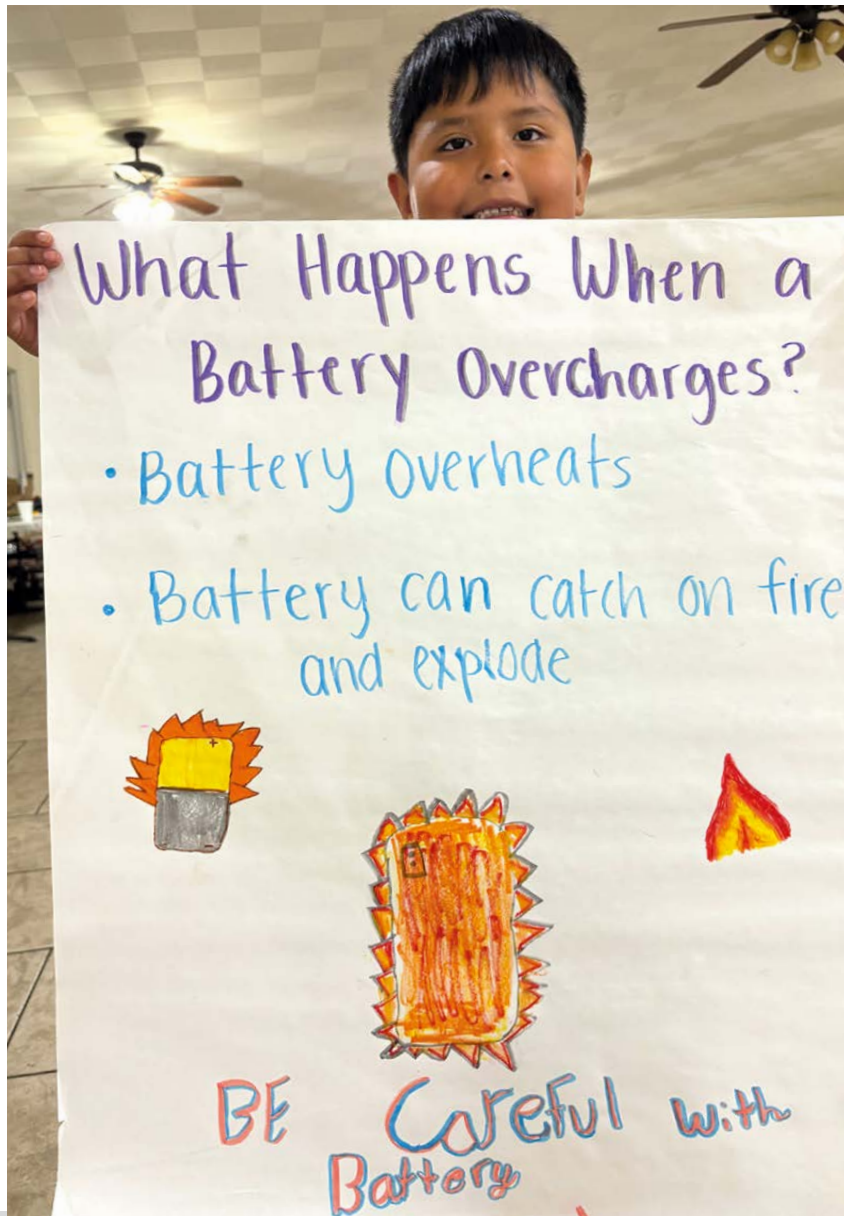 What Happens When a
Battery Overcharges?
• Battery overheats
• Battery can catch on fire
and explode
+
BE Careful with
Battery